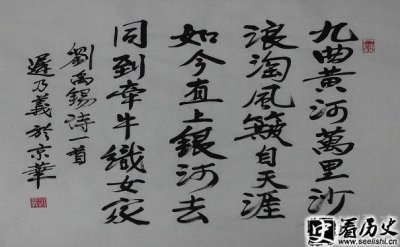 九曲黃河萬里沙
浪淘風簸自天涯
如今直上銀河去
同到牽牛織女家
劉禹錫詩一首
遲乃義於京華
看历史
www.seelishi.cn